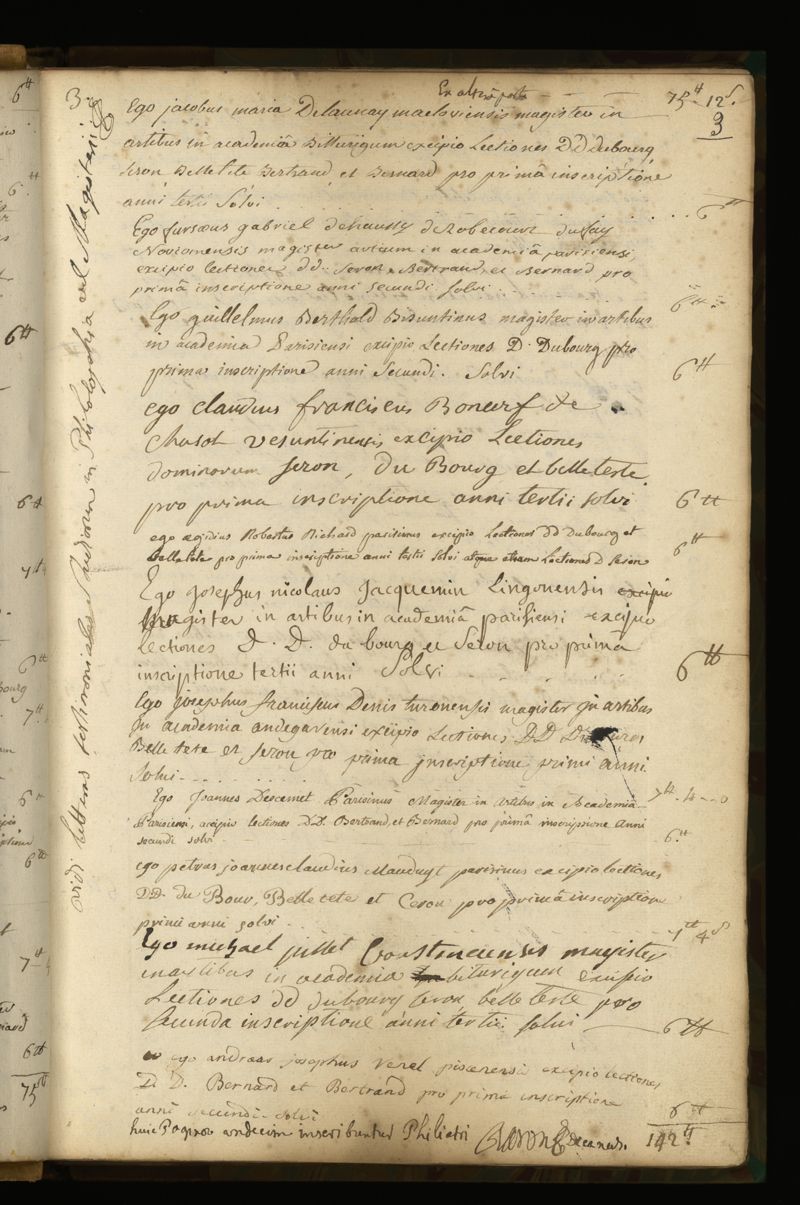 Ex alterâ parte — — — 75 ₶ 12 s.
3
Ego jacobus maria Delaunay macloviensis magister in
artibus in academiâ Bitturigum excipio Lectiones DD dubourg,
seron Belletete Bertrand, et Bernard pro primâ inscriptione
anni tertii Solvi . . . . . . 6 ₶
Ego furseus gabriel dehaussy deRobecourt
Noviomensis magister artium in academiâ parisiensi,
excipio lectiones dd. Seron, Bertrand, et Bernard pro
primâ inscriptione anni secundi solvi . . . 6 ₶
Ego guillelmus Berthold Bisuntinus magister in artibus
in academia Parisiensi excipio Lectiones D. Dubourg pro
prima inscriptione anni Secundi. Solvi 6 ₶
ego claudius franciscus Boncerf de
chasot vesuntinensis excipio Lectiones
dominorum seron, du Bourg et belleteste
pro prima inscriptione anni tertii solvi 6 ₶
ego ægidius Robertus Richard parisinus excipio Lectiones dd Dubourg et
belletete pro prima inscriptione anni tertii Solvi atque etiam Lectiones D Seron 6 ₶
Ego josephus nicolaus jacquemin Lingonensis excipio
magister in artibus in academiâ parisiensi excipio
Lectiones D. D. du bourg et Seron pro primâ
inscriptione tertii anni Solvi . . . 6 ₶
Ego josephus franciscus Denis turonensis magister in artibus
in academia andegavensi excipio Lectiones DD
Belletete et seron pro prima inscriptione primi anni
Solvi . . . . . . 7 ₶ 4
Ego Joannes Descemet Parisinus Magister in Artibus in Academia
Parisiensi, excipio lectiones D.D. Bertrand, et Bernard pro primâ inscriptione Anni
secundi solvi 6 ₶
ego petrus joannes claudius Mauduyt parisinus excipio lectiones
DD. du Bour, Belletete et Ceron pro primâ inscriptione
primi anni solvi . . . 7 ₶ 4 s
Ego michael jullet Constinciensis magister
in artibus in academia biturigum excipio
Lectiones dd dubourg seron belle teste pro
secunda inscriptione anni tertii solvi — 6 ₶
ego andreas josephus excipio lectiones
D D. Bernard et Bertrand pro prima inscriptione
anni secundi solvi 6 ₶
huic Paginæ undecim inscribuntur Philiatri BARON decanus. 142 ₶
3.
vidi litteras testimoniales Studiorum in Philosophia vel Magisterii